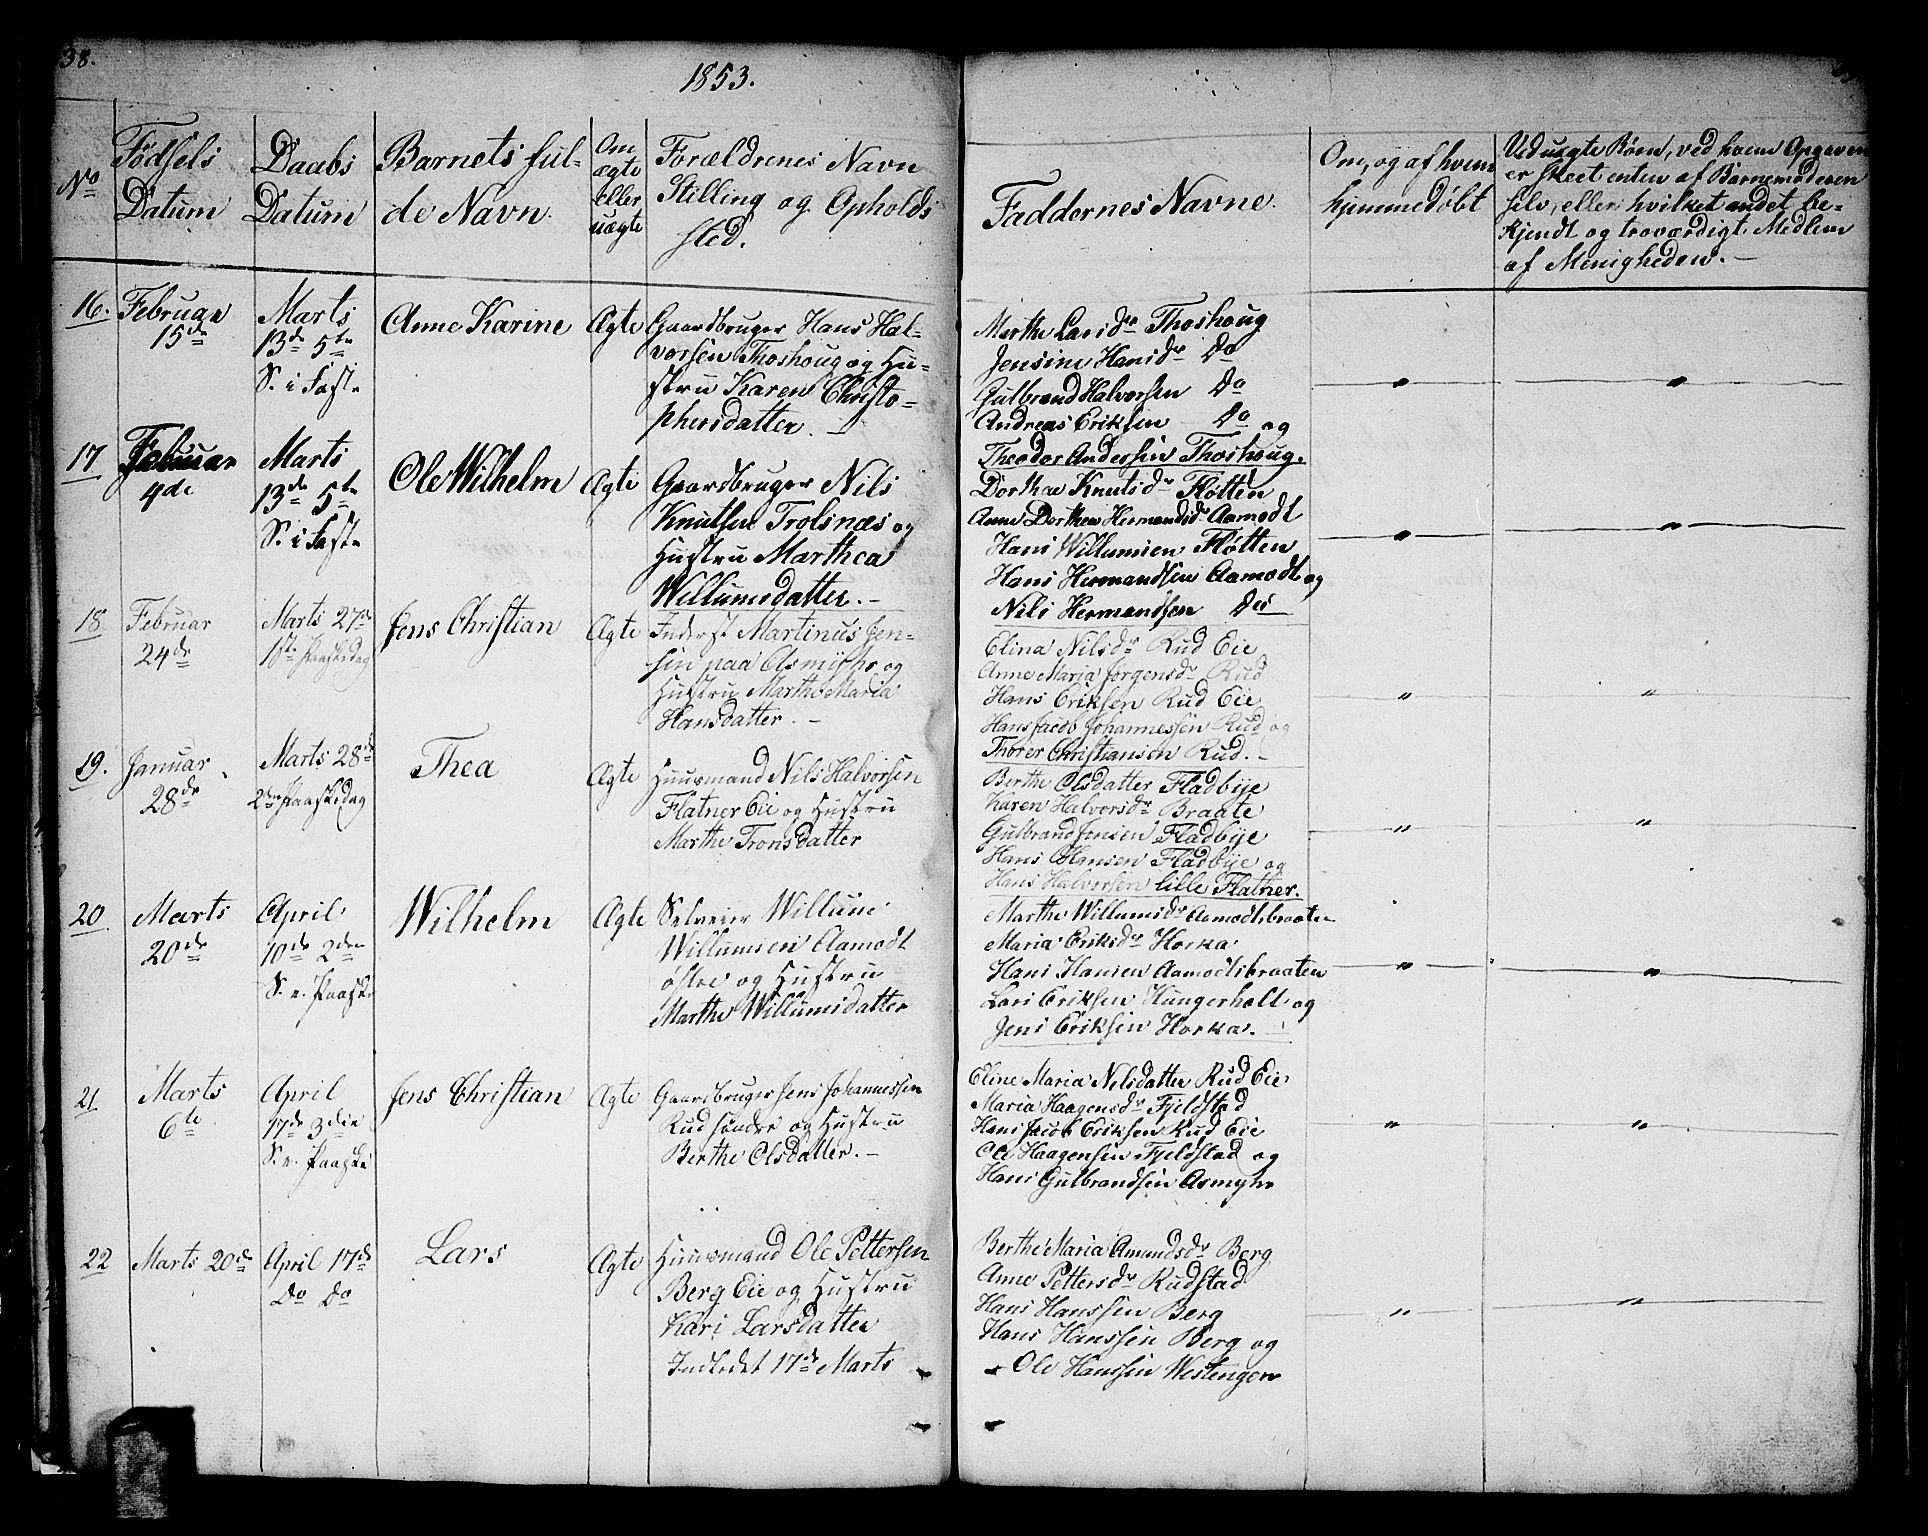 38.
1853.
No
Fødsels
Datum
Daabs
Datum
Barnets ful-
de Navn.
Om
ægte
eller
uægte
Forældrenes Navn
Stilling og Opholds
sted.
Faddernes Navne.
Om, og af hvem
hjemmedøbt
Ved uægte Børn, ved hvem Opgaven
er skeet enten af Barnemoderen
selv, eller hvilket andet be-
kjendt og troværdigt Medlem
af Menigheden. –
16.
Februar
15de
Marts
13de 5te
S. i Faste
Anne Karine
Ægte
Gaardbruger Hans Hal-
vorsen Thoshoug og Hu-
stru Karen Christo-
phersdatter. –
Marthe Larsdr Thoshoug
Jensine Hansdr Do
Gulbrand Halvorsen Do
Andreas Eriksen Do og
Theodor Andersen Thoshoug.
"
"
17
Februar
4de
Marts
13de 5te
S. i Faste
Ole Wilhelm
Ægte
Gaardbruger Nils
Knutsen Trolsnæs og
Hustru Marthea
Willumsdatter. –
Dorthae Knutsdr Fløtten
Anne Dorthea Hermandsdr Aamodt
Hans Willumsen Fløtten
Hans Hermandsen Aamodt og
Nils Hermandsen Do
"
"
18
Februar
24de
Marts 27de
1ste Paaskedag
Jens Christian
Ægte
Inderst Martinus Jen-
sen paa Asmyhr og
Hustru Marthe Maria
Hansdatter. –
Elina Nilsdr Rud Eie
Anne Maria Jørgensdr Rud
Hans Eriksen Rud Eie
Hans Jacob Johannessen Rud og
Thorer Christiansen Rud. –
"
"
19.
Januar
28de
Marts 28de
2den Paaskedag
Thea
Ægte
Huusmand Nils Halvorsen
Flatner Eie og Hustru
Marthe Tronsdatter
Berthe Olsdatter Fladbye
Karen Halvorsdr Braate
Gulbrand Jensen Fladbye
Hans Hansen Fladbye og
Hans Halvorsen Lille Flatner.
"
"
20
Marts
20de
April
10de 2den
S. e. Paaske
Wilhelm
Ægte
Selveier Willum
Willumsen Aamodt
østre og Hustru
Marthe Willumsdatter
Marthe Willumsdr Aamodtsbraaten
Maria Eriksdr Horka
Hans Hansen Aamodtsbraaten
Lars Eriksen Hungerholt og
Jens Eriksen Horka. –
"
"
21
Marts
6te
April
17de 3die
S. e. Paaske
Jens Christian
Ægte
Gaardbruger Jens Johannessen
Rud søndre og Hustru
Berthe Olsdatter. –
Eline Maria Nelsdatter Rud Eie
Maria Haagensdr Fjeldstad
Hans Jacob Eriksen Rud Eie
Ole Haagensen Fjeldstad og
Hans Gulbrandsen Asmyhr
"
"
22
Marts 20de
April 17de
Do Do
Lars
Ægte
Huusmand Ole Pettersen
Berg Eie og Hustru
Kari Larsdatter
Indledet 17de Marts
Berthe Maria Amundsdr Berg
Anne Pettersdr Rudstad
Hans Hanssen Berg
Hans Hanssen Berg og
Ole Hanssen Westengen
"
"